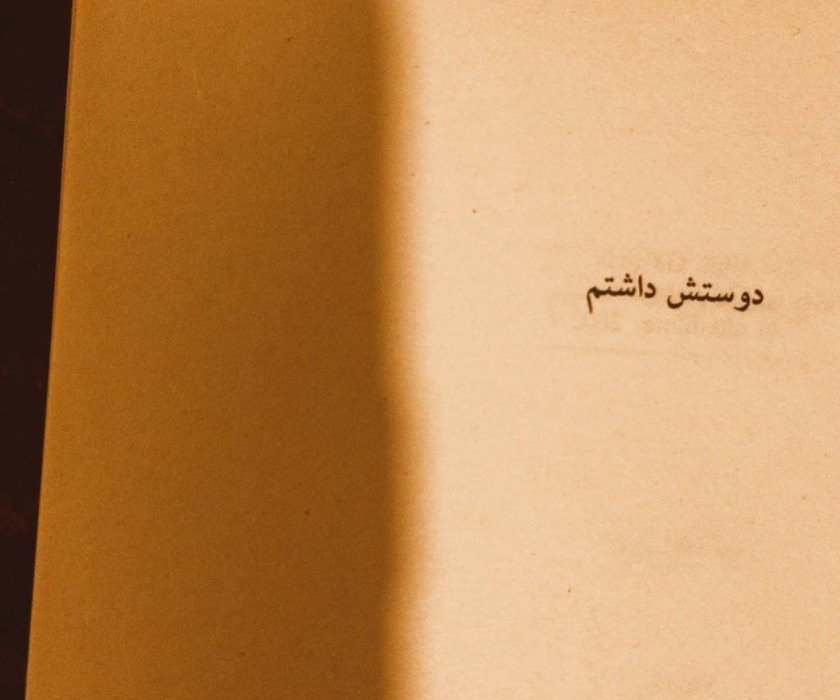 دوستش داشتم